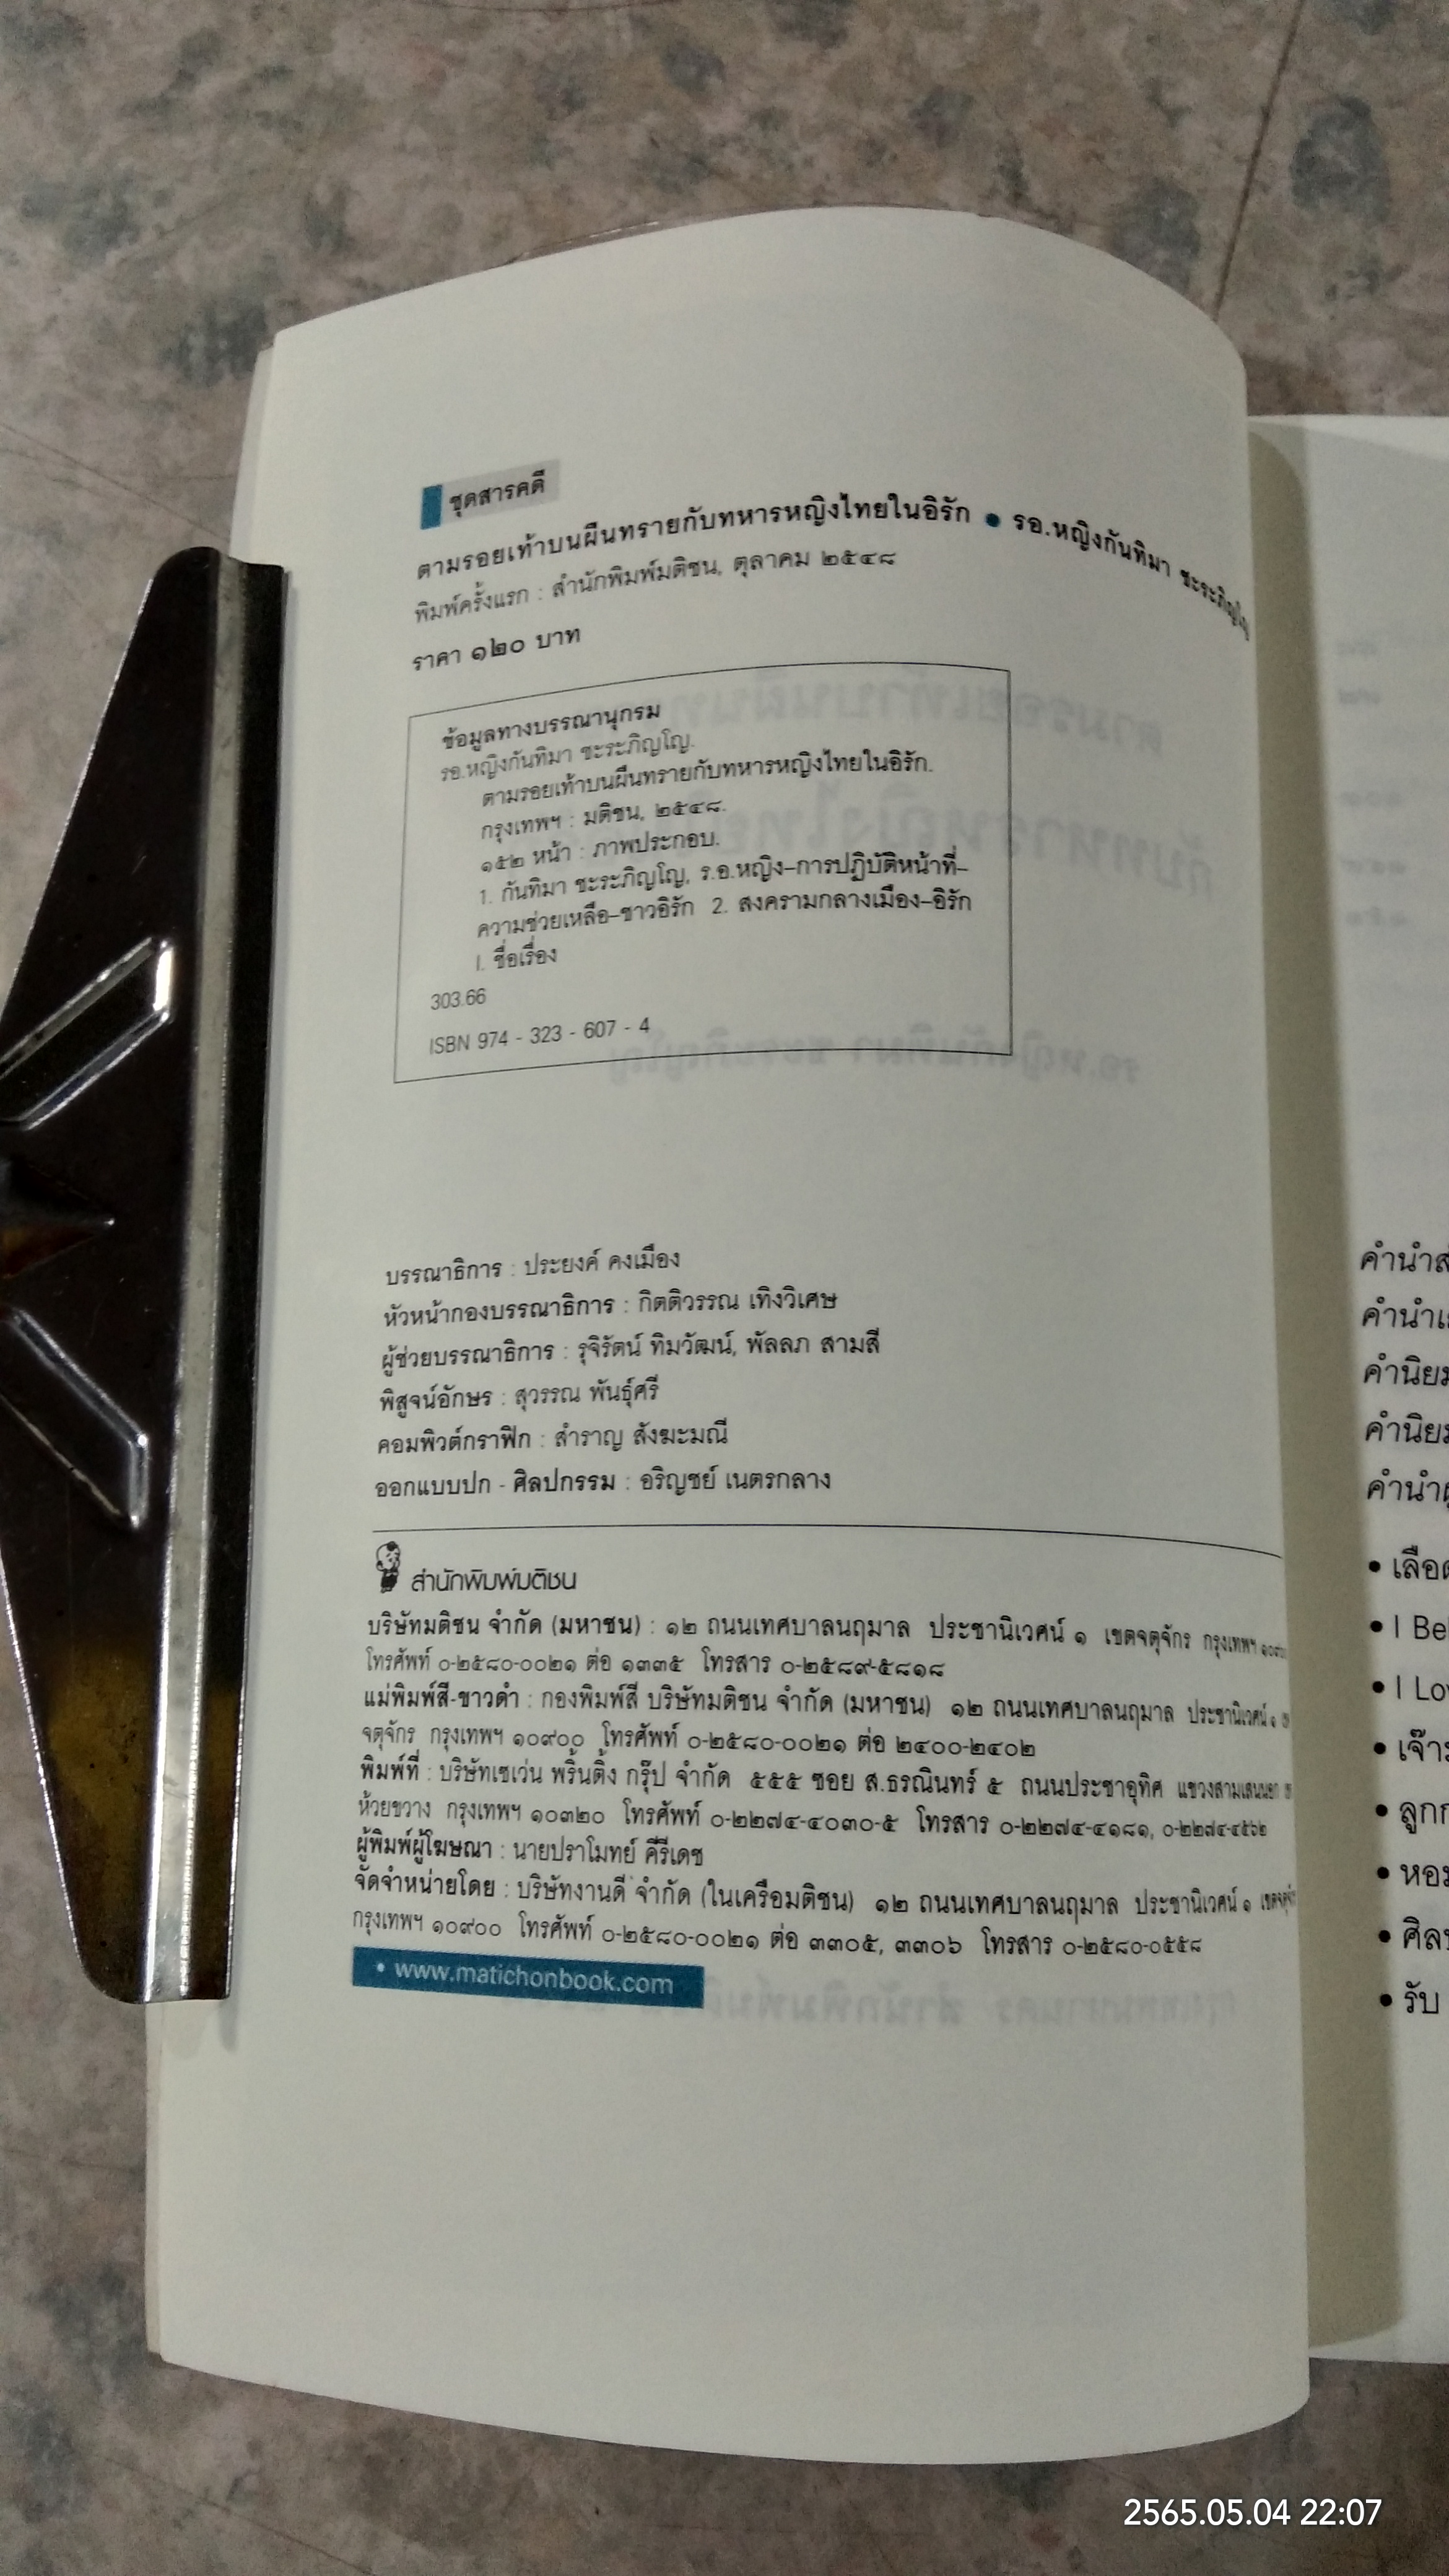 ชุดสารคดี
ตามรอยเท้าบนผืนทรายกับทหารหญิงไทยในอิรัก ● รอ.หญิงกันทิมา ชะระภิญโญ
พิมพ์ครั้งแรก : สำนักพิมพ์มติชน, ตุลาคม ๒๕๔๘
ราคา ๑๒๐ บาท
ข้อมูลทางบรรณานุกรม
รอ.หญิงกันทิมา ชะระภิญโญ.
ตามรอยเท้าบนผืนทรายกับทหารหญิงไทยในอิรัก.
กรุงเทพฯ : มติชน, ๒๕๔๘.
๑๕๒ หน้า : ภาพประกอบ.
1. กันทิมา ชะระภิญโญ, ร.อ.หญิง–การปฏิบัติหน้าที่–
ความช่วยเหลือ–ชาวอิรัก 2. สงครามกลางเมือง–อิรัก
I. ชื่อเรื่อง
303.66
ISBN 974 - 323 - 607 - 4
บรรณาธิการ : ประยงค์ คงเมือง
หัวหน้ากองบรรณาธิการ : กิตติวรรณ เทิงวิเศษ
ผู้ช่วยบรรณาธิการ : รุจิรัตน์ ทิมวัฒน์, พัลลภ สามสี
พิสูจน์อักษร : สุวรรณ พันธุ์ศรี
คอมพิวต์กราฟิก : สำราญ สังฆะมณี
ออกแบบปก - ศิลปกรรม : อริญชย์ เนตรกลาง
สำนักพิมพ์มติชน
บริษัทมติชน จำกัด (มหาชน) : ๑๒ ถนนเทศบาลนฤมาล ประชานิเวศน์ ๑ เขตจตุจักร กรุงเทพฯ
โทรศัพท์ ๐-๒๕๘๐-๐๐๒๑ ต่อ ๑๓๓๕ โทรสาร ๐-๒๕๘๙-๕๘๑๘
แม่พิมพ์สี-ขาวดำ : กองพิมพ์สี บริษัทมติชน จำกัด (มหาชน) ๑๒ ถนนเทศบาลนฤมาล ประชานิเวศน์ ๑
จตุจักร กรุงเทพฯ ๑๐๙๐๐ โทรศัพท์ ๐-๒๕๘๐-๐๐๒๑ ต่อ ๒๔๐๐-๒๔๐๒
พิมพ์ที่ : บริษัทเซเว่น พริ้นติ้ง กรุ๊ป จำกัด ๕๕๕ ซอย ส.ธรณินทร์ ๕ ถนนประชาอุทิศ แขวงสามเสนนอก
ห้วยขวาง กรุงเทพฯ ๑๐๓๒๐ โทรศัพท์ ๐-๒๒๗๔-๔๐๓๐-๕ โทรสาร ๐-๒๒๗๔-๔๑๘๑, ๐-๒๒๗๔-๔๕๖๒
ผู้พิมพ์ผู้โฆษณา : นายปราโมทย์ คีรีเดช
จัดจำหน่ายโดย : บริษัทงานดี จำกัด (ในเครือมติชน) ๑๒ ถนนเทศบาลนฤมาล ประชานิเวศน์ ๑
กรุงเทพฯ ๑๐๙๐๐ โทรศัพท์ ๐-๒๕๘๐-๐๐๒๑ ต่อ ๓๓๐๕, ๓๓๐๖ โทรสาร ๐-๒๕๘๐-๐๕๕๘
• www.matichonbook.com
• รับ
2565.05.04 22:07